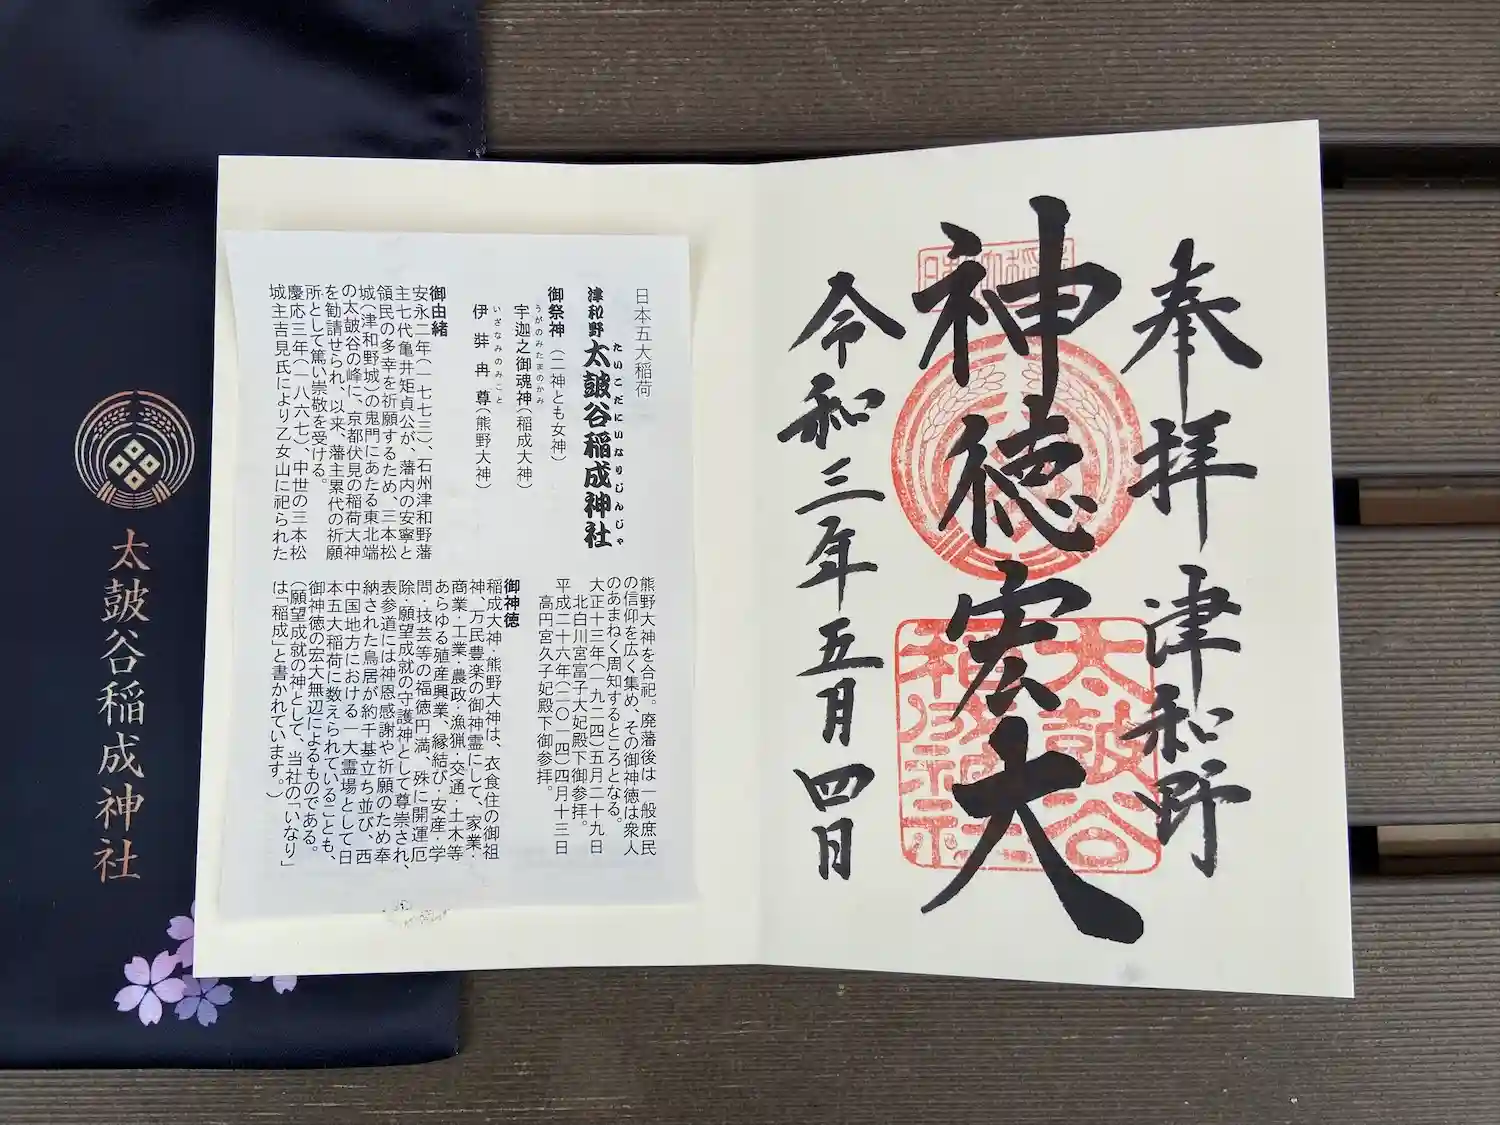 奉拝 津和野
神徳宏大
令和三年五月四日
太皷谷
稲成神社
日本五大稲荷
津和野 太皷谷稲成神社
たいこだにいなりじんじゃ
御祭神（二神とも女神）
うがのみたまのかみ
宇迦之御魂神（稲成大神）
いざなみのみこと
伊弉冉尊（熊野大神）
御由緒
安永二年（一七七三）、石州津和野藩
主七代亀井矩貞公が、藩内の安寧と
領民の多幸を祈願するため、三本松
城（津和野城）の鬼門にあたる東北端
の太皷谷の峰に、京都伏見の稲荷大神
を勧請せられ、以来、藩主累代の祈願
所として篤い崇敬を受ける。
慶応三年（一八六七）、中世の三本松
城主吉見氏により乙女山に祀られた
熊野大神を合祀。廃藩後は一般庶民
の信仰を広く集め、その御神徳は衆人
のあまねく周知するところとなる。
大正十三年（一九二四）五月二十九日
北白川宮富子大妃殿下御参拝。
平成二十六年（二〇一四）四月十三日
高円宮久子妃殿下御参拝。
御神徳
稲成大神・熊野大神は、衣食住の御祖
神、万民豊楽の御神霊にして、家業・
商業・工業・農政・漁猟・交通・土木等
あらゆる殖産興業、縁結び・安産・学
問・技芸等の福徳円満、殊に開運厄
除・願望成就の守護神として尊崇され、
表参道には神恩感謝や祈願のため奉
納された鳥居が約千基立ち並び、西
中国地方における一大霊場として日
本五大稲荷に数えられていることも、
御神徳の宏大無辺によるものである。
（願望成就の神として、当社の「いなり」
は「稲成」と書かれています。）
太皷谷稲成神社